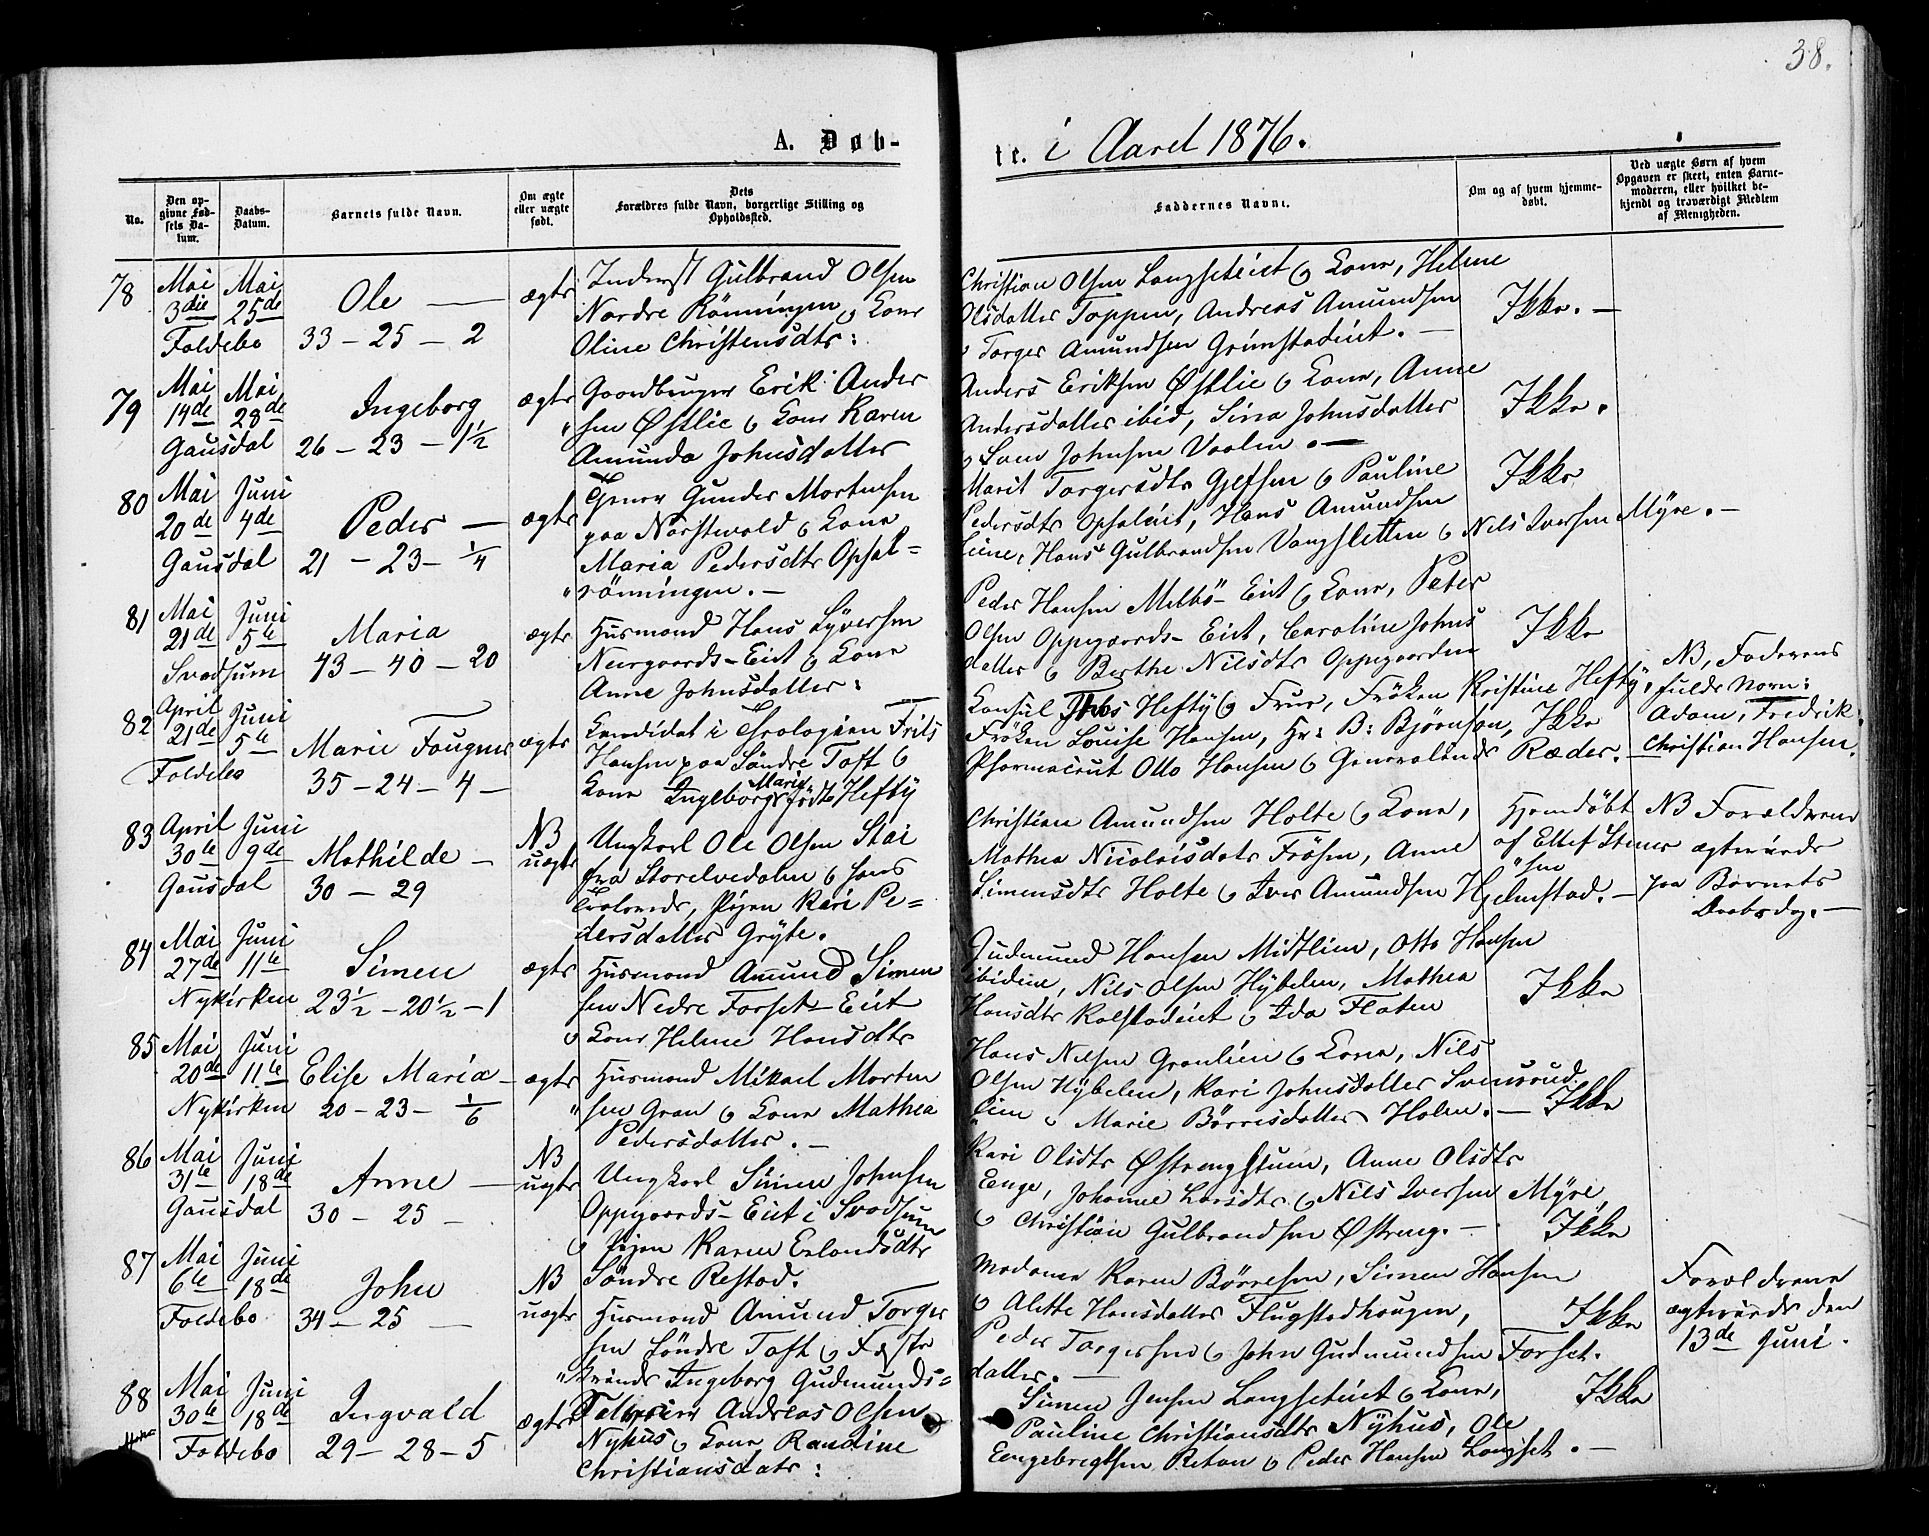 38.
A. Døb-
te. i Aaret 1876.
No.
Den op-
givne Fød-
sels Da-
tum.
Daabs-
Datum.
Barnets fulde Navn.
Om ægte
eller uægte
født.
Dets
Forældres fulde Navn, borgerlige Stilling og
Opholdssted.
Faddernes Navne.
Om og af hvem hjemme-
døbt.
Ved uægte Børn af hvem
Opgaven er skeet, enten Barne-
moderen, eller hvilket be-
kjendt og troværdigt Medlem
af Menigheden.
78
Mai
3die
Mai
25de
Foldebo
Ole
33 - 25 - 2
ægte
Inderst Gulbrand Olsen
Nordre Rönningen og Kone
Oline Christensdtr:
Christian Olsen Langseteiet og Kone, Helene
Olsdatter Toppen, Andreas Amundsen
og Torger Amundsen Grimstadeiet. -
Ikke. -
79
Mai
14de
Mai
28de
Gausdal
Ingeborg
26 - 23 - 1½
ægte
Gaardbruger Erik Ander
"sen Østlie og Kone Karen
Amunda Johnsdatter
Anders Eriksen Østlie og Kone, Anne
Andersdatter ibid, Sina Johnsdatter
og Sven Johnsen Vaalen. -
Ikke.
80
Mai
20de
Juni
4de
Gausdal
Peder -
21 - 23 - ¼
ægte
Tjener Gunder Mortensen
paa Nörstevold og Kone
Maria Pedersdtr Opsal=
"rönningen. -
Marit Torgersdtr Gjefsen og Pauline
Pedersdtr Opsaleiet, Hans Amundsen
Liene, Hans Gulbrandsen Vangsletten og Nils Iversen Myre. -
Ikke
81
Mai
21de
Juni
5te
Svadsum
Maria
43 - 40 - 20
ægte
Husmand Hans Syversen
Neergaards-Eiet og Kone
Anne Johnsdatter:
Peder Hansen Melbö-Eiet og Kone, Peter
Olsen Oppegaards-Eiet, Caroline Johns
datter og Berthe Nilsdtr Oppegaarden
Ikke
82
April
21de
Juni
5te
Foldebo
Marie Fougner
35 - 24 - 4 -
ægte
Kandidat i Theologien Frits
Hansen paa Söndre Toft og
Kone Ingeborg Marie födt Hefty
Konsul Thos Hefty og Frue, Fröken Kristine Hefty,
Fröken Louise Hansen, Hr: B: Björnson,
Pharmaceut Otto Hansen og Generalinde Ræder. -
Ikke
NB, Faderens
fulde Navn:
Adam, Fredrik
Christian Hansen.
83
April
30te
Juni
9de
Gausdal
Mathilde -
30 - 29
NB
uægte
Ungkarl Ole Olsen Stai
fra Storelvedalen og hans
Trolovede, Pigen Kari Pe=
dersdatter Gryte.
Christian Amundsen Holte og Kone,
Mathea Nicolaisdatr Frösen, Anne
Simensdtr Holte og Iver Amundsen Hjelmstad. -
Hjemdöbt
af Ellef Steners
"sen
NB Forældrene
ægteviede
paa Barnets
Daabsdag. -
84
Mai
27de
Juni
11te
Nykirken
Simen
23½ - 20½ - 1
ægte
Husmand Amund Simen
sen Nedre Forset-Eiet
og Kone Helene Hansdtr
Gudmund Hansen Midtlien, Otto Hansen
ibidem, Nils Olsen Hybelen, Mathea
Hansdtr Kolstadeiet og Ida Flaten
Ikke
85
Mai
20de
Juni
11te
Nykirken
Elise Maria -
20 - 23 - 1/6
ægte
Husmand Mikael Morten
"sen Gran og Kone Mathea
Pedersdatter. -
Hans Nilsen Granlien og Kone, Nils
Olsen Hybelen, Kari Johnsdatter Svensrud
lien og Marie Börresdatter Holen. -
Ikke
86
Mai
31te
Juni
18de
Gausdal
Anne -
30 - 25 -
NB
uægte
Ungkarl Simen Johnsen
Oppegaards-Eiet i Svadsum
og Pigen Karen Erlandsdtr
Söndre Restad.
Kari Olsdtr Østrengstuen, Anne Olsdtr
Enge, Johanne Larsdtr og Nils Iversen Myre
og Christian Gulbrandsen Østreng. -
Ikke
87
Mai
6te
Juni
18de
Foldebo
John
34 - 25 -
NB
uægte
Husmand Amund Torger
sen Söndre Toft og Fæste
"kvinde Ingeborg Gudmunds=
datter. -
Madame Karen Börresen, Simen Hansen
og Alette Hansdatter Flugstadhaugen,
Peder Torgersen og John Gudmundsen Forset.
Ikke
Forældrene
ægteviede den
13de Juni.
88
Mai
30te
Juni
18de
Foldebo
Ingvald
29 - 28 - 5
ægte
Andreas Olsen
Nyhus og Kone Randine
Christiansdatr:
Simen Jensen Langseteiet og Kone,
Pauline Christiansdtr Nyhus, Ole
Engebregtsen Retan og Peder Hansen Langset. -
Ikke